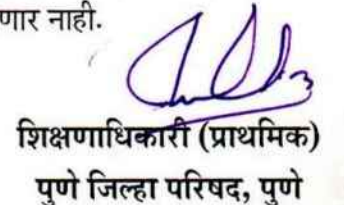 णार नाही.
शिक्षणाधिकारी (प्राथमिक)
पुणे जिल्हा परिषद, पुणे